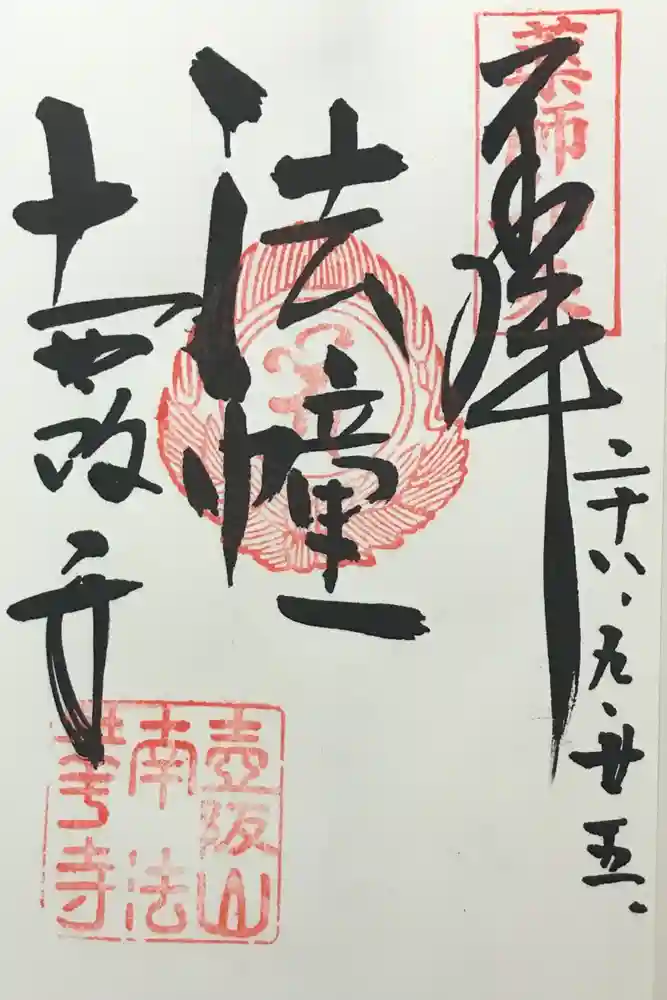 薬師如来
奉拝
二十八、九、廿五、
法幢
壷阪寺
壺阪山
南法
華寺